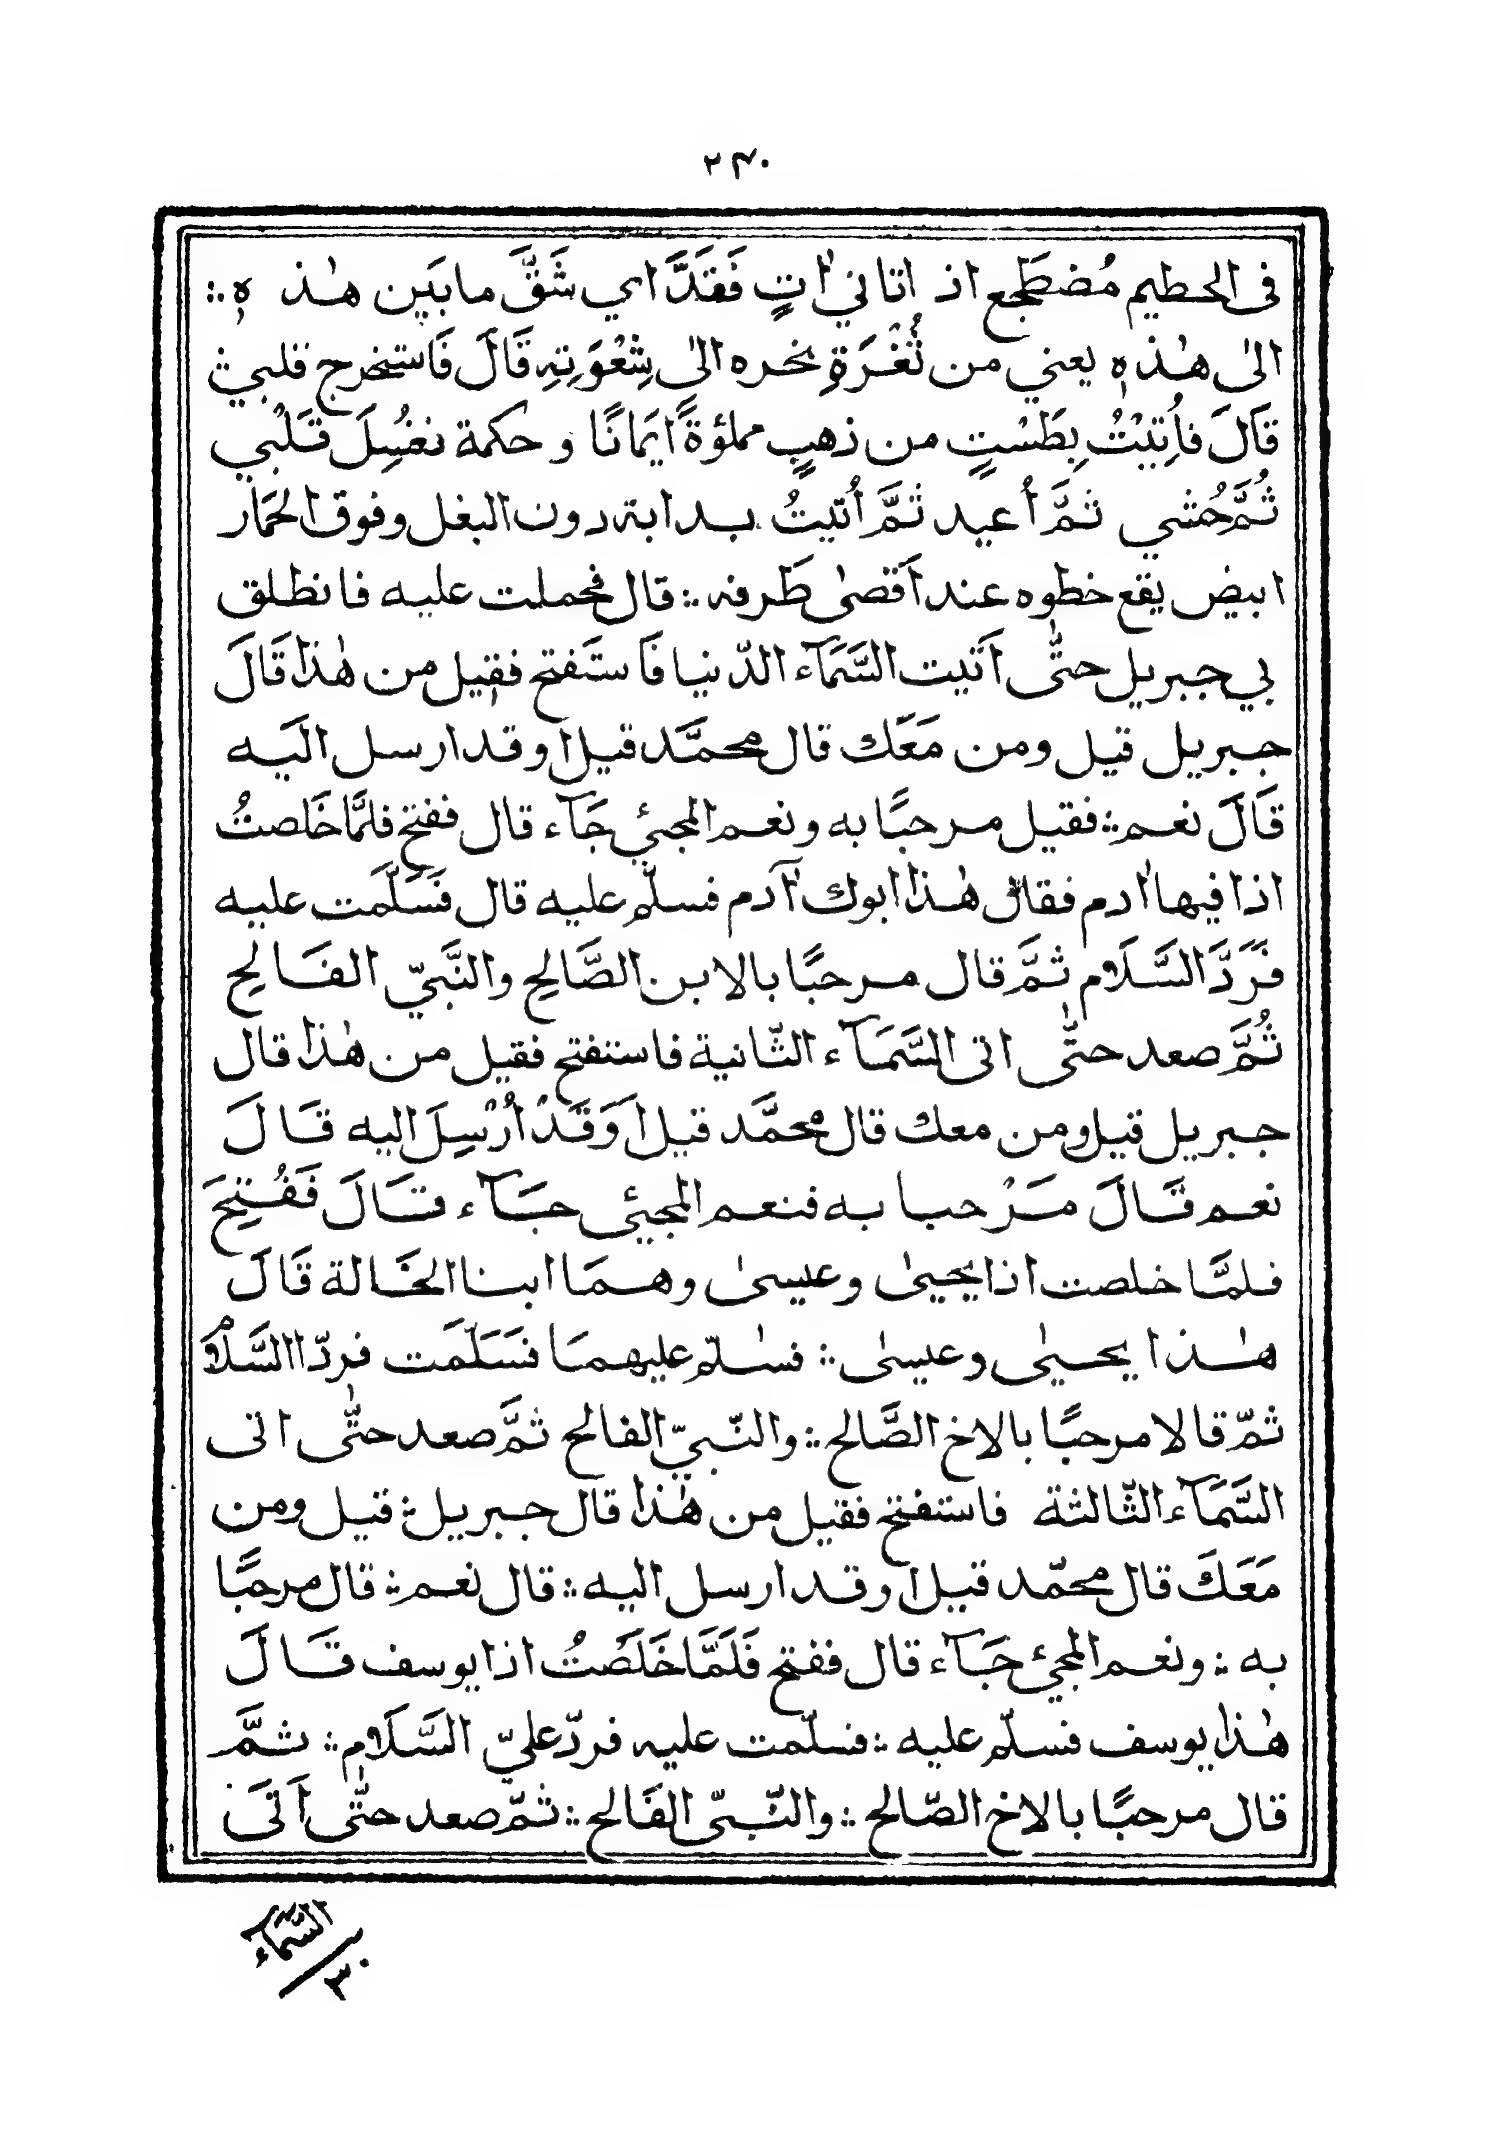 ٢٤٠
فى الحطيم مُضطَجع اذ اتانى اٰتٍ فَقَدَّ اى شَقَّ مابَين هٰذهٖ ؞
الىٰ هٰذهٖ يعني من ثُغْرَةِ نحره الىٰ شِعْرَتِهِ قَالَ فَاستخرج قلبي
قَالَ فاُتِيْتُ بِطَسْتٍ من ذهبٍ مملؤةً ايمانًا و حكمة نغُسِلَ قَلْبي
ثُمَّ حُشي ثمَّ أُعيد ثمَّ أُتيتُ بدابة دون البغل وفوق الحمَار
ابيض يقع خطوه عند اَقصىٰ طَرفه ؞ قال فحملت عليه فانطلق
بي جبريل حتّٰى اَتيت السَّمَآء الدّنيا فَاستَفتح فقيل من هٰذا قَالَ
جبريل قيل ومن مَعَك قال محمَّد قيل اَوقد ارسل اليَه
قَالَ نعم ؞ فقيل مرحبًا به ونعم المجئي جَآء قال ففتح فلمَّا خَلصتُ
اذا فيها اٰدم فقال هٰذا ابوك اٰدم فسلّم عليه قال فَسَلّمَت عليه
فَرَدَّ السَّلَام ثمَّ قال مرحبًا بالابن الصَّالحِ والنَّبيّ الفَالحِ
ثُمَّ صعد حتّٰى اتى السَّمَآء الثّانية فاستفتح فقيل من هٰذا قال
جبريل قيل ومن معك قال محمَّد قيل اَوَقَدْ اُرْسِلَ اليه قَالَ
نعم قَالَ مَرْحبا به فنعم المجيئي جَآء قَالَ فَفُتِحَ
فلمَّا خلصت اذا يحيىٰ وعيسىٰ وهمَا ابنا الخَالة قَالَ
هٰذا يحيىٰ وعيسىٰ ؞ فسلّم عليهمَا فَسَلّمَت فردّا السَّلَامُ
ثمّ قالا مرحبًا بالاخ الصَّالح ؞ والنّبيّ الفالح ثمَّ صعد حتّٰى اتى
السَّمَآء الثّالثة فاستفتح فقيل من هٰذا قال جبريل ؞ قيل ومن
مَعَكَ قال محمّد قيل اَوقد ارسل اليه ؞ قال نعم ؞ قال مرحبًا
به ؞ ونعم المجيء جَآء قال ففتح فَلَمَّا خَلَصَتُ اذا يوسف قَالَ
هٰذا يوسف فسلّم عليه ؞ فسلّمت عليه فردّ عليّ السَّلَام ؞ ثمَّ
قال مرحبًا بالاخ الصّالح ؞ والنّبيّ الفَالح ؞ ثمّ صعد حتّٰى اَتىَ
السَّمآء
٣٠